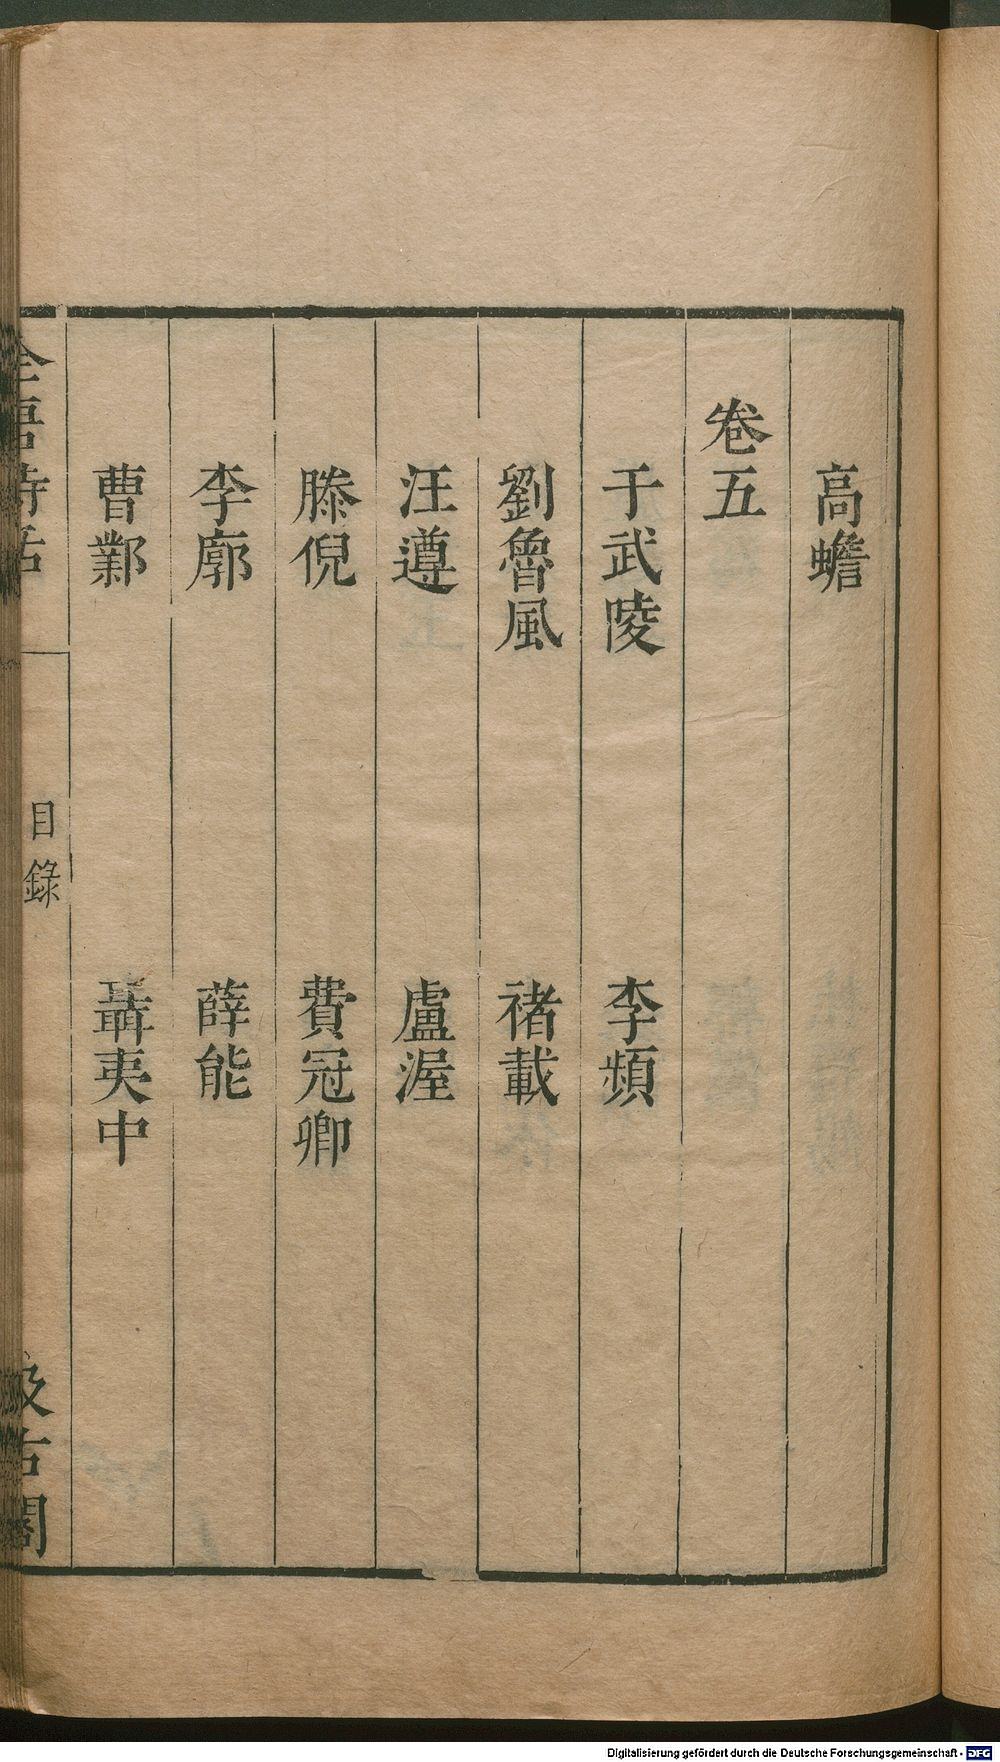 高蟾
卷五
于武陵 李頻
劉魯風 褚載
汪遵 盧渥
滕倪 費冠卿
李廓 薛能
曹鄴 聶夷中
全唐詩話 目錄 汲古閣
Digitalisierung gefördert durch die Deutsche Forschungsgemeinschaft - DFG